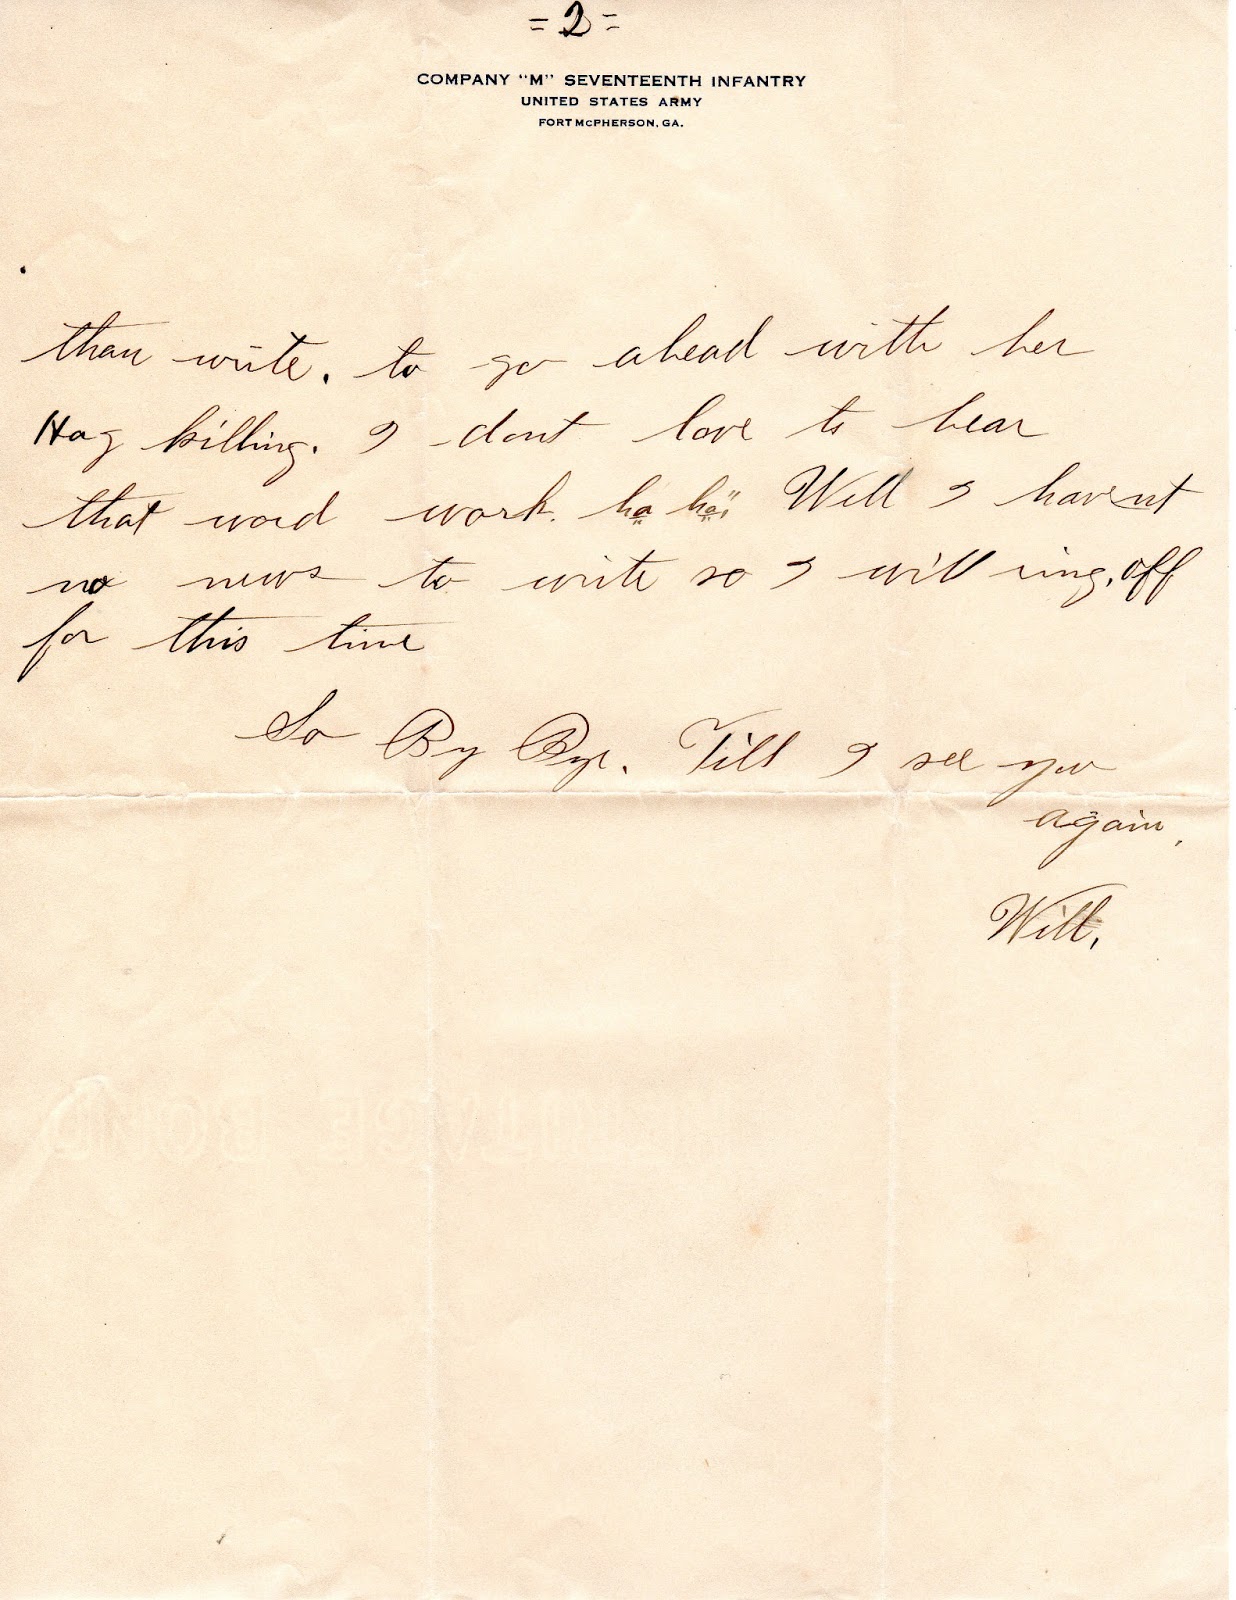 =2=
COMPANY "M" SEVENTEENTH INFANTRY
UNITED STATES ARMY
FORT McPHERSON, GA.
than write. to go ahead with her
Hog killing. I dont love to hear
that word work. ha ha" Well I havent
no news to write so I will ring, off
for this time
So By Bye. Till I see you
again,
Will,
BOND